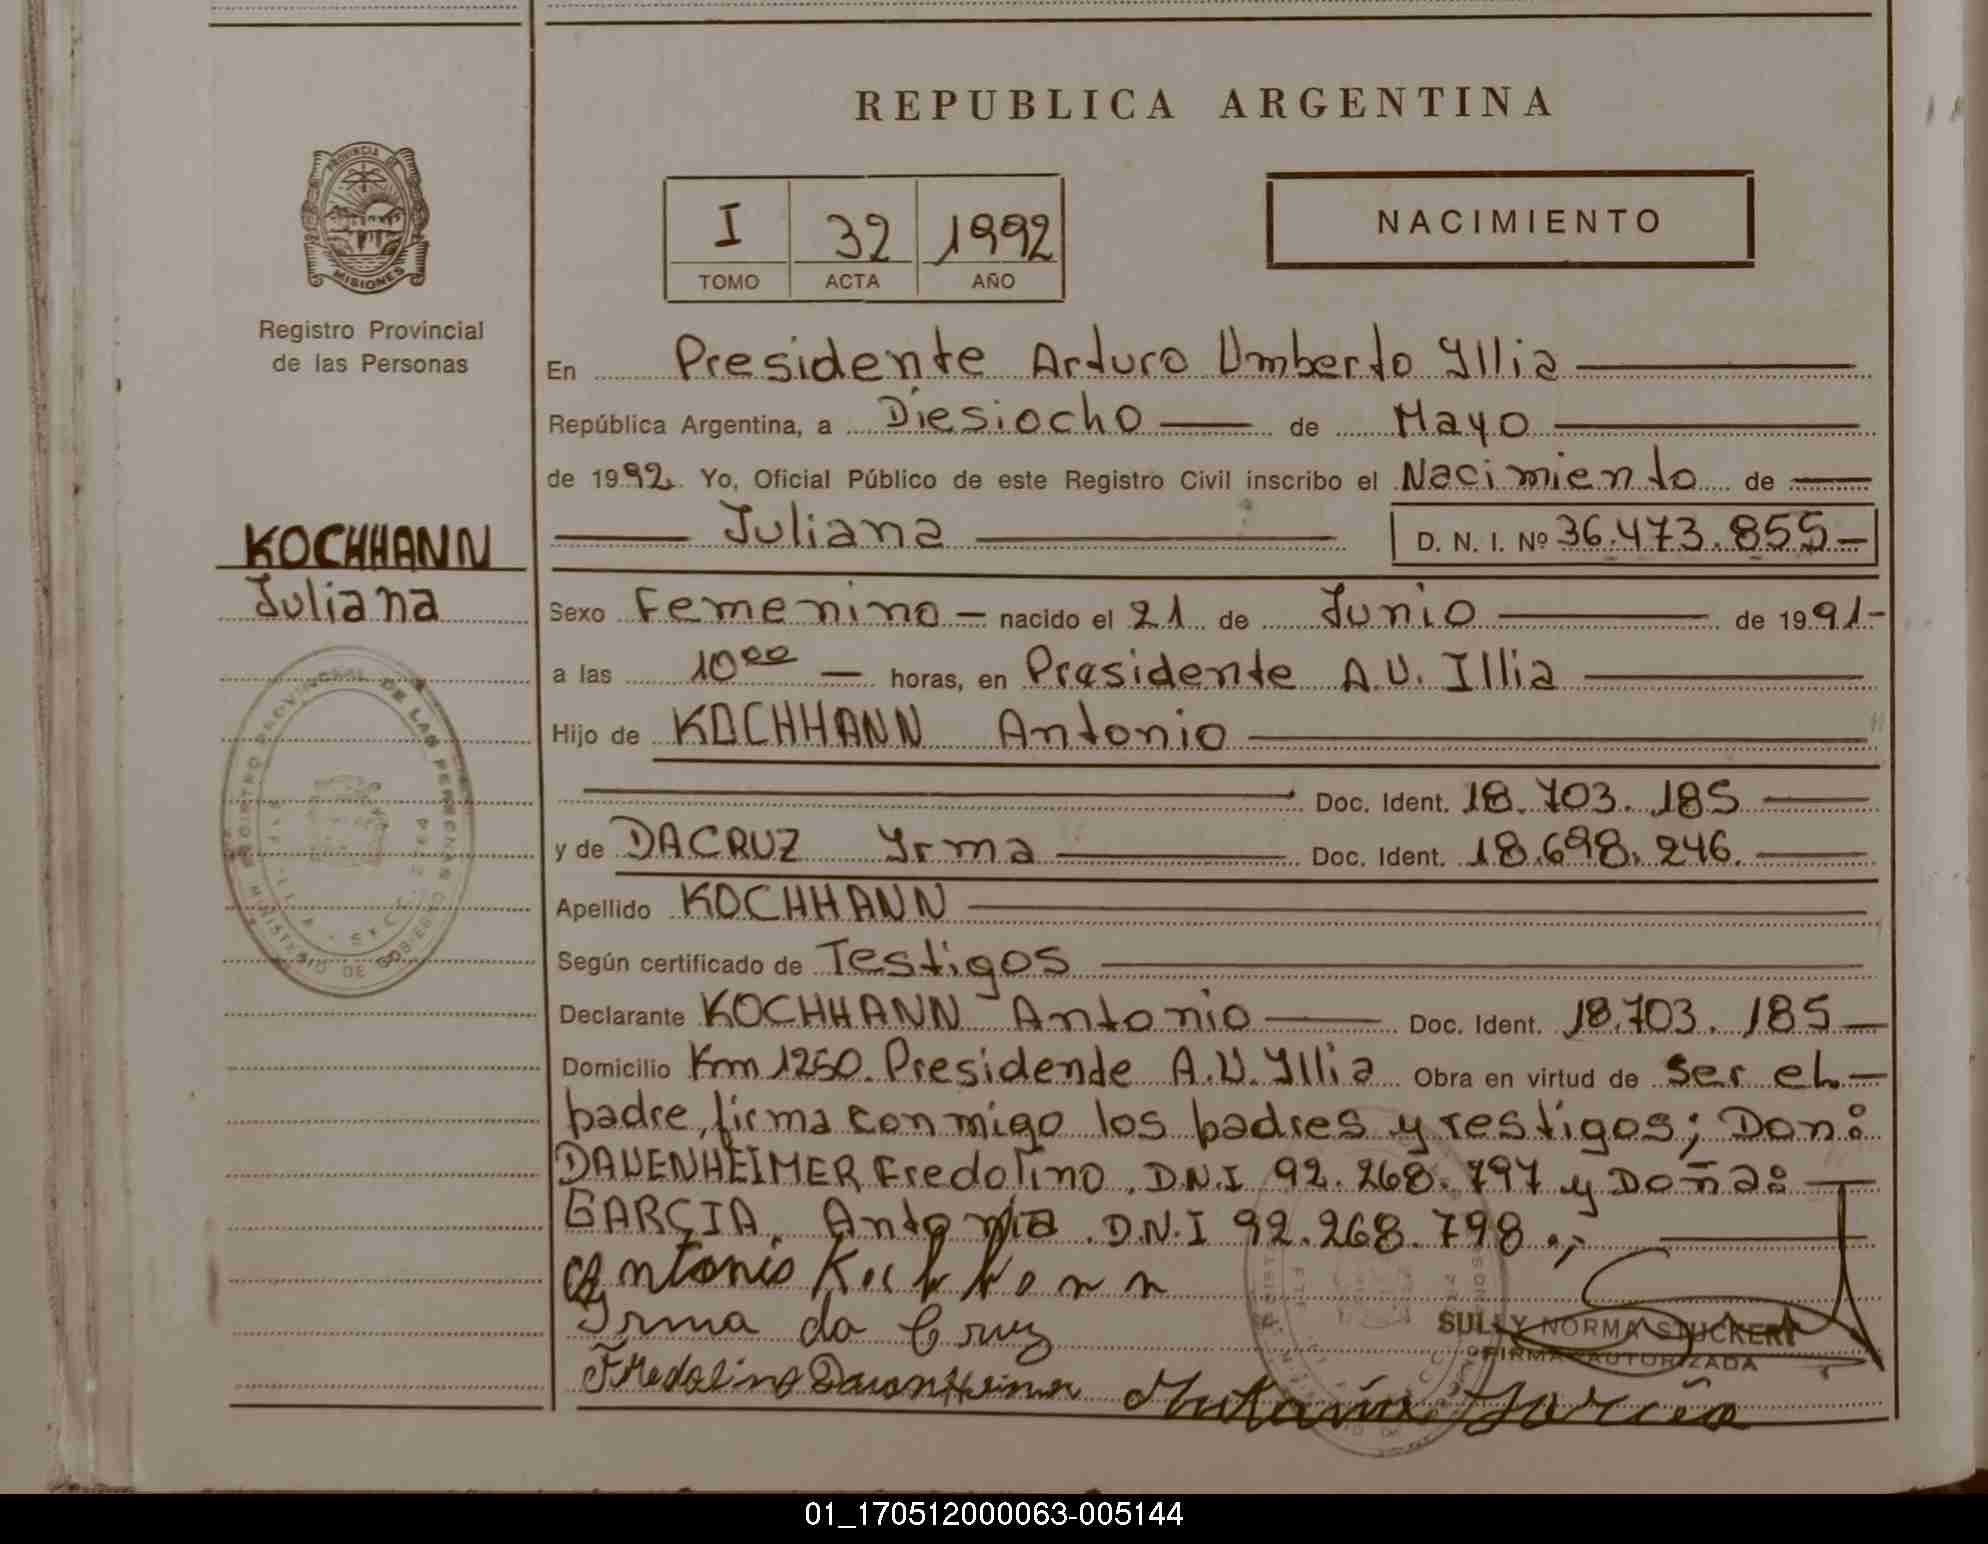 REPUBLICA ARGENTINA
PROVINCIA DE MISIONES
I 32 1992
TOMO ACTA AÑO
NACIMIENTO
Registro Provincial
de las Personas
KOCHHANN
Juliana
En Presidente Arturo Umberto Yllia
República Argentina, a Diesiocho de Mayo
de 1992 Yo, Oficial Público de este Registro Civil inscribo el Nacimiento de
Juliana D. N. I. Nº 36.473.855
Sexo Femenino nacido el 21 de Junio de 1991
a las 10 00 horas, en Presidente A.U. Illia
Hijo de KOCHHANN Antonio
Doc. Ident. 18.703.185
y de DACRUZ Yrma Doc. Ident. 18.698.246.
Apellido KOCHHANN
Según certificado de Testigos
Declarante KOCHHANN Antonio Doc. Ident. 18.703.185
Domicilio Km 1250. Presidende A.U. Yllia Obra en virtud de ser el
padre, firma con migo los padres y restigos; Don:
DAUENHEIMER Fredolino. D.N.I 92.268.797 y Doña:
GARCIA. Antonia. D.N.I 92.268.798.,-
Antonio Kochhann
Irma da Cruz
SULLY NORMA STUCKERT
FIRMA AUTORIZADA
Fredolino Dauenheimer Antonia Garcia
REGISTRO PROVINCIAL DE LAS PERSONAS
MINISTERIO DE GOBIERNO
01_170512000063-005144